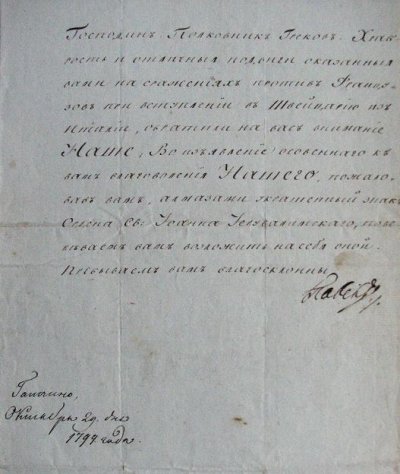 Господинъ Полковникъ Грековъ. Храб-
рость и отличныя подвиги оказанныя
вами на сраженіяхъ противъ Францу-
зовъ при вступленіи въ Швейцарію изъ
Италіи, обратили на васъ вниманіе
НАШЕ, Во изъявленіе особеннаго къ
вамъ благоволенія НАШЕГО, пожало-
вавъ вамъ, алмазами украшенный знакъ
Ордена Св: Іоанна Іерусалимскаго, пове-
лѣваемъ вамъ возложить на себя оной.
Пребываемъ вамъ благосклонны
Павелъ
Гатчино,
Октября 29. дня
1799 года.